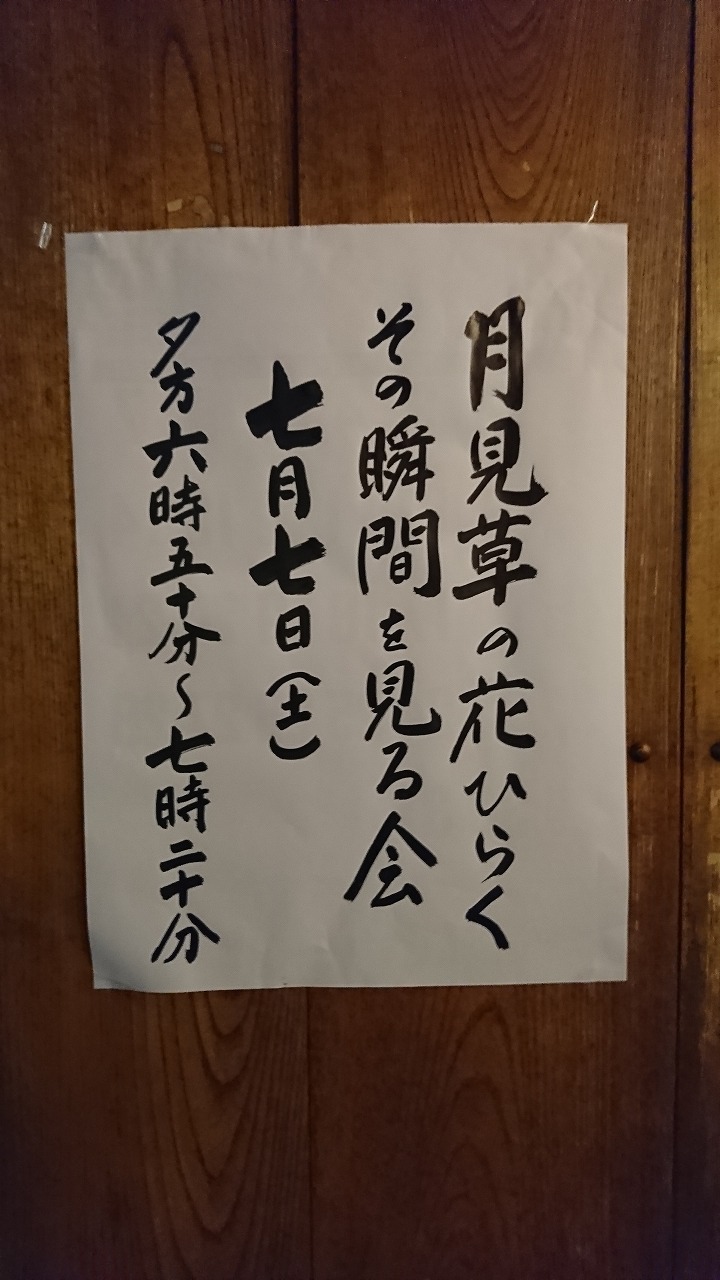 月見草の花ひらく
その瞬間を見る会
七月七日(土)
夕方六時五十分〜七時二十分